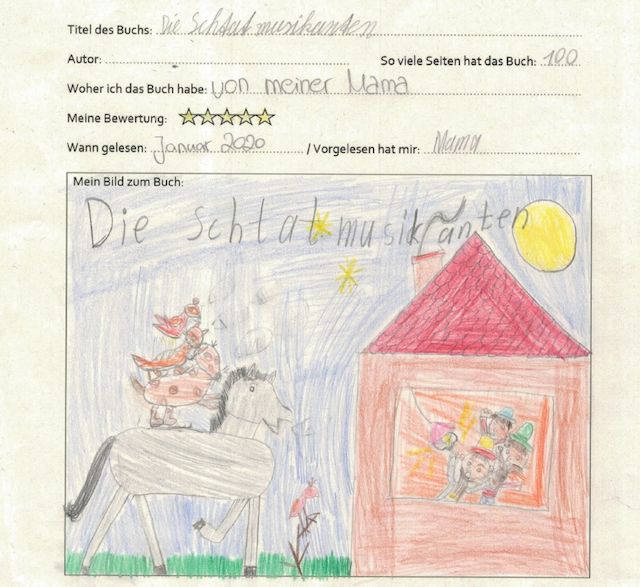 Titel des Buchs: Die Schtat musikanten
Autor:
So viele Seiten hat das Buch: 100
Woher ich das Buch habe: von meiner Mama
Meine Bewertung:
Wann gelesen: Januar 2020 / Vorgelesen hat mir: Mama
Mein Bild zum Buch:
Die Schtat musikanten